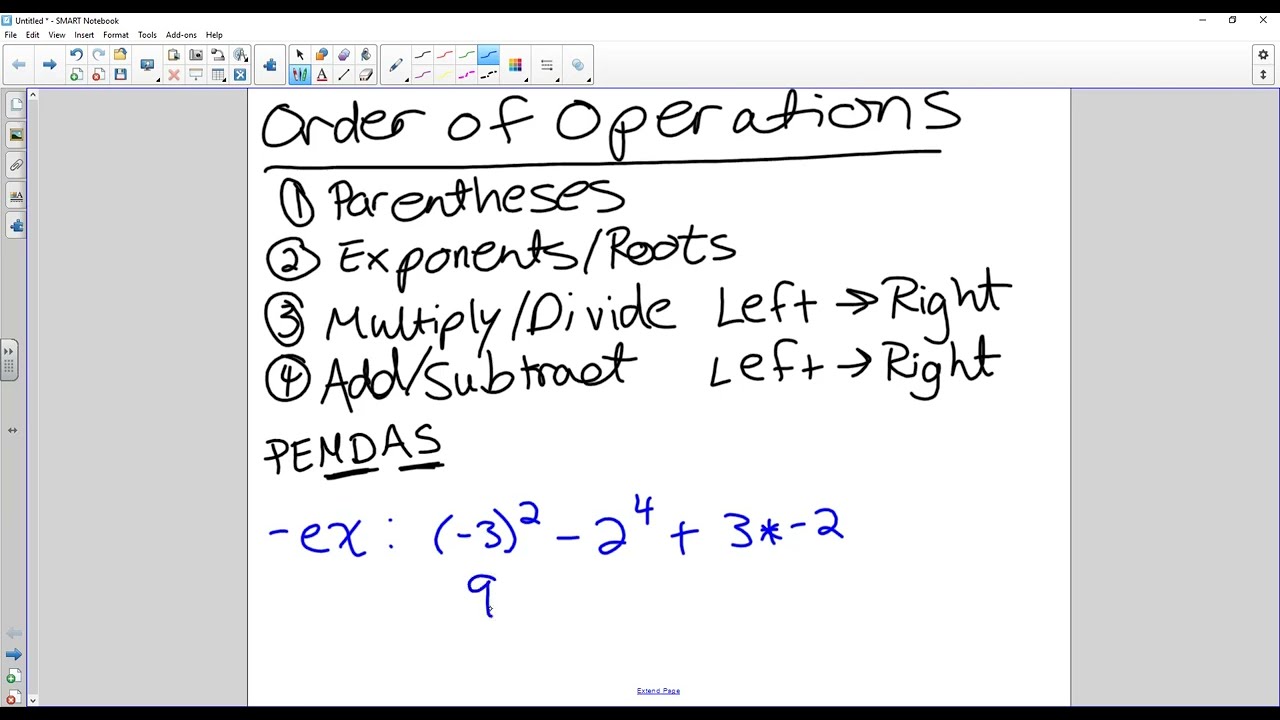 Untitled * - SMART Notebook
File Edit View Insert Format Tools Add-ons Help
Order of Operations
① Parentheses
② Exponents/Roots
③ Multiply/Divide Left → Right
④ Add/Subtract Left → Right
PEMDAS
-ex: (-3)² - 2⁴ + 3*-2
9
Extend Page